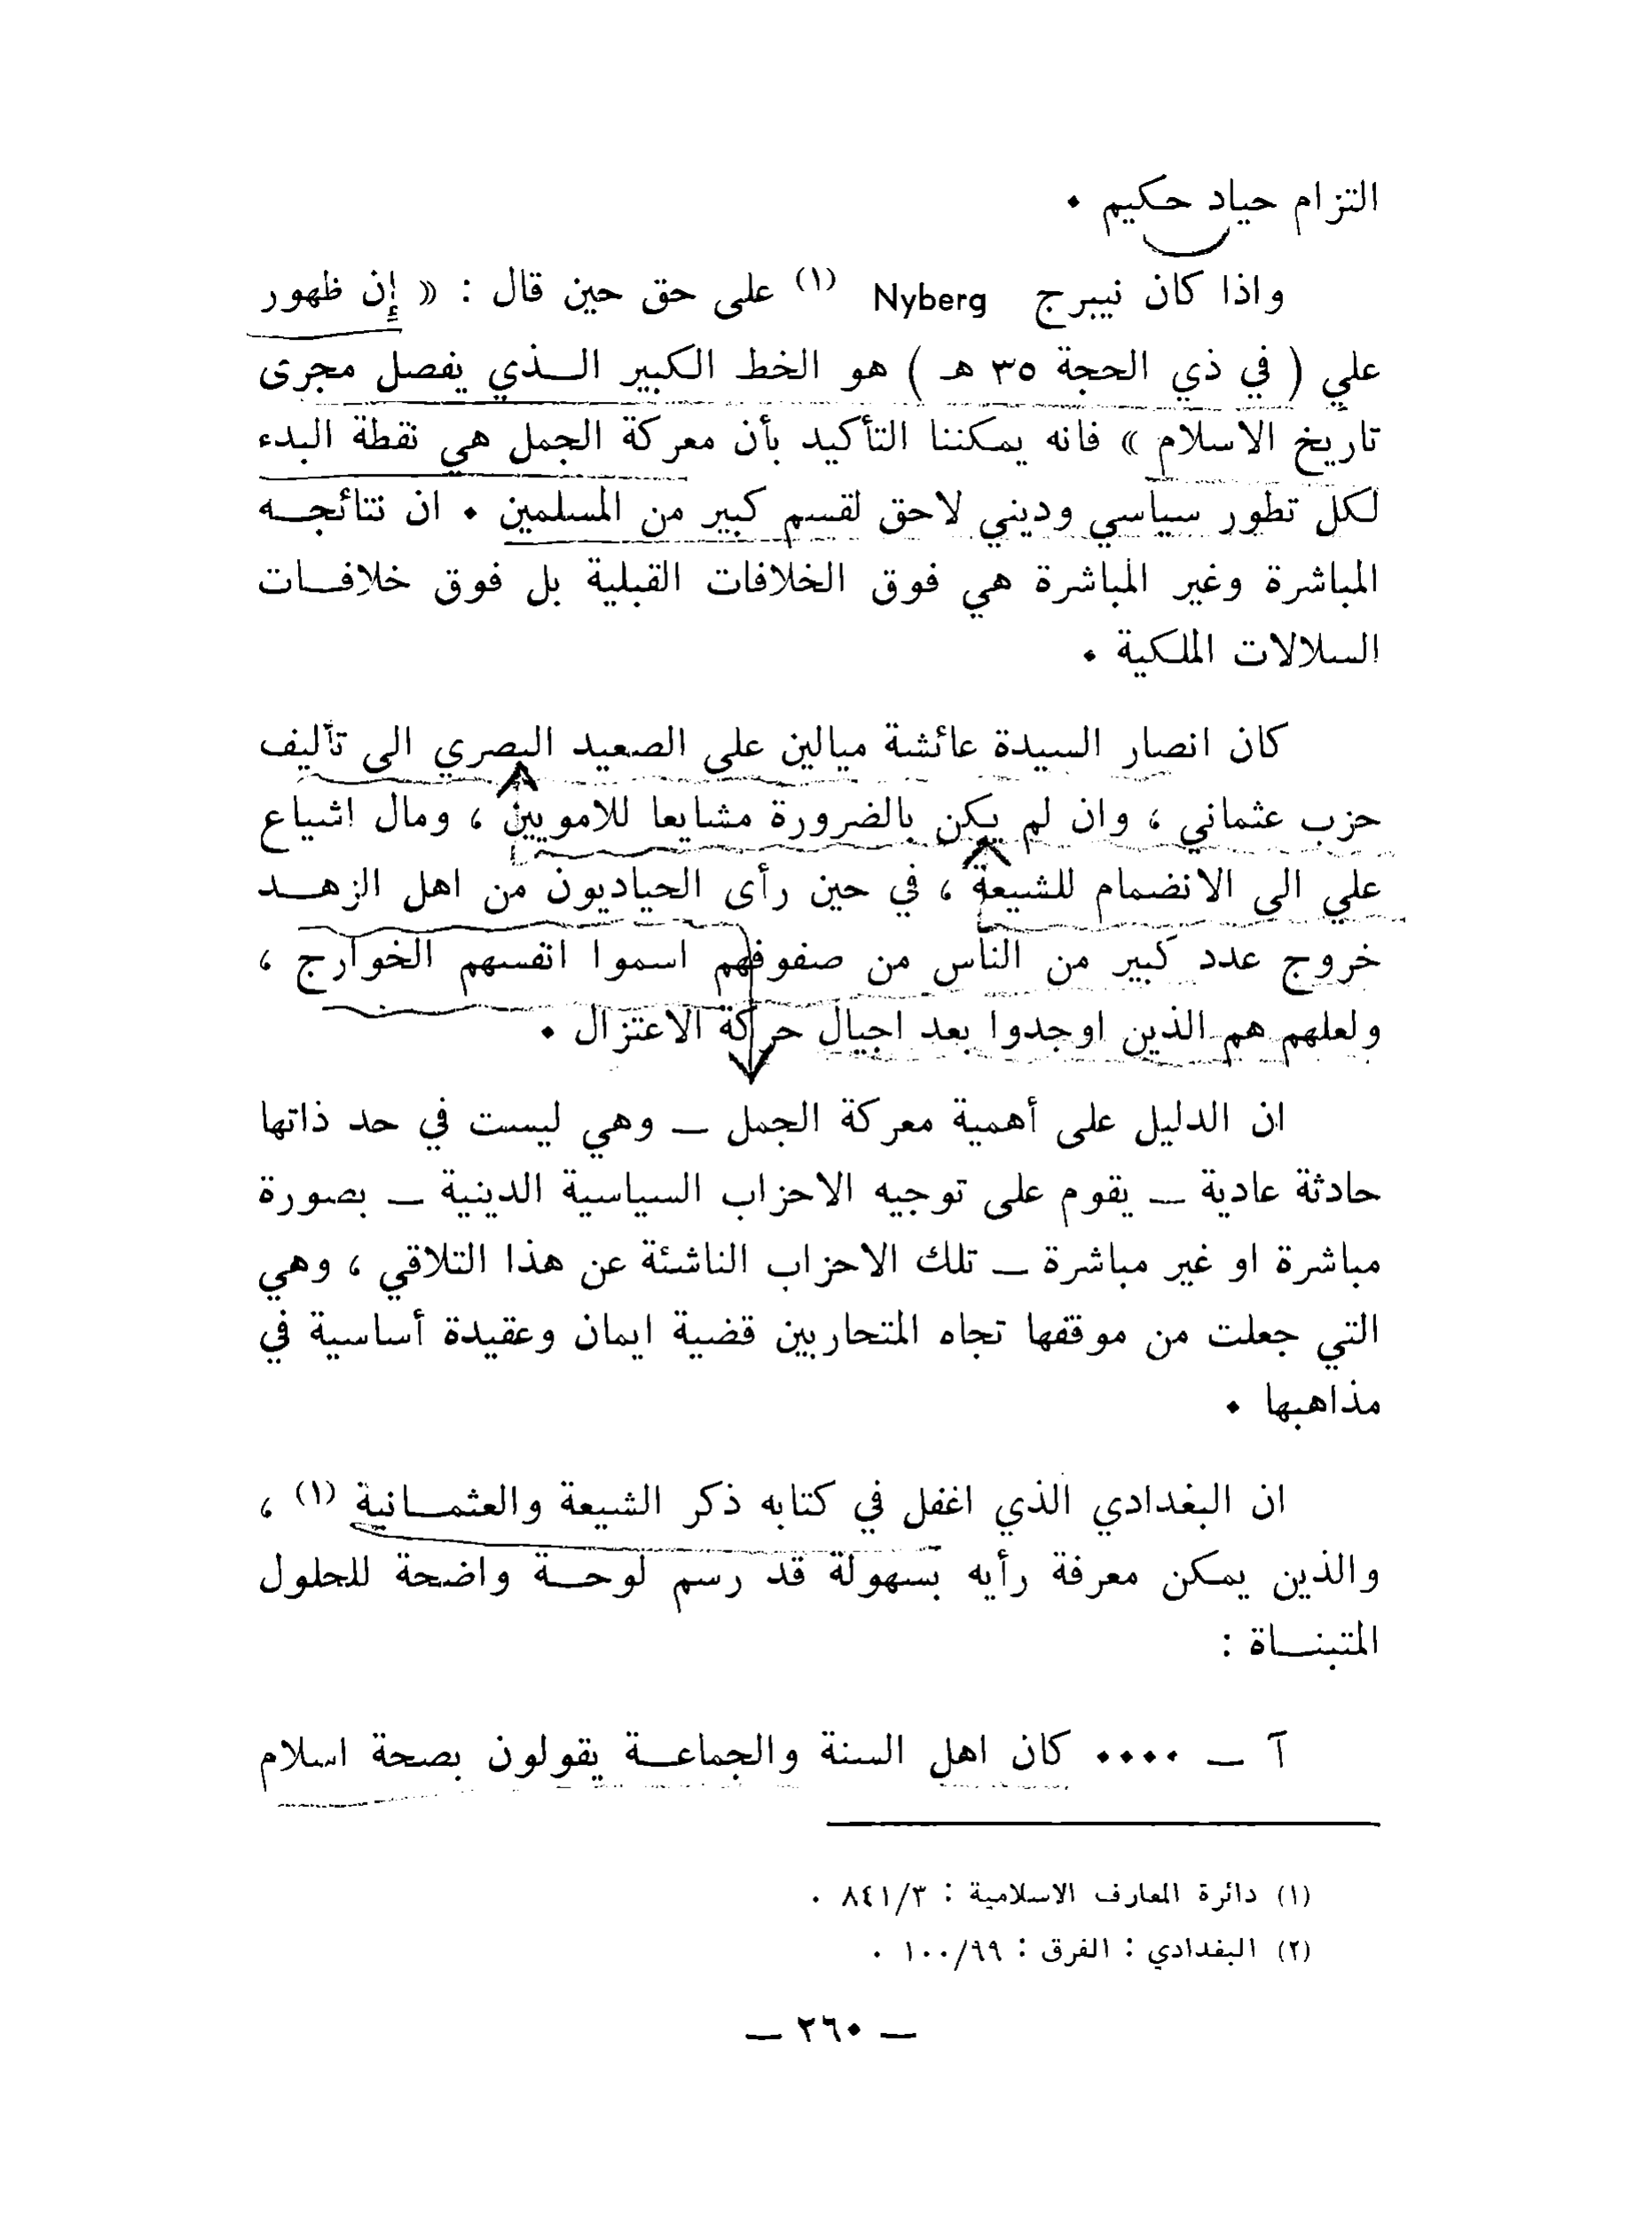 التزام حياد حكيم ٠
واذا كان نيبرج Nyberg (١) على حق حين قال : « إن ظهور
علي ( في ذي الحجة ٣٥ هـ ) هو الخط الكبير الــذي يفصل مجرى
تاريخ الاسلام » فانه يمكننا التأكيد بأن معركة الجمل هي نقطة البدء
لكل تطور سياسي وديني لاحق لقسم كبير من المسلمين ٠ ان نتائجــه
المباشرة وغير المباشرة هي فوق الخلافات القبلية بل فوق خلافــات
السلالات الملكية ٠
كان انصار السيدة عائشة ميالين على الصعيد البصري الى تأليف
حزب عثماني ، وان لم يكن بالضرورة مشايعا للامويين ، ومال اشياع
علي الى الانضمام للشيعة ، في حين رأى الحياديون من اهل الزهــد
خروج عدد كبير من الناس من صفوفهم اسموا انفسهم الخوارج ،
ولعلهم هم الذين اوجدوا بعد اجيال حركة الاعتزال ٠
ان الدليل على أهمية معركة الجمل ــ وهي ليست في حد ذاتها
حادثة عادية ــ يقوم على توجيه الاحزاب السياسية الدينية ــ بصورة
مباشرة او غير مباشرة ــ تلك الاحزاب الناشئة عن هذا التلاقي ، وهي
التي جعلت من موقفها تجاه المتحاربين قضية ايمان وعقيدة أساسية في
مذاهبها ٠
ان البغدادي الذي اغفل في كتابه ذكر الشيعة والعثمــانية (١) ،
والذين يمكن معرفة رأيه بسهولة قد رسم لوحــة واضحة للحلول
المتبنــاة :
آ ــ ٠٠٠٠ كان اهل السنة والجماعــة يقولون بصحة اسلام
(١) دائرة المعارف الاسلامية : ٨٤١/٣ ٠
(٢) البغدادي : الفرق : ١٠٠/٩٩ ٠
ــ ٢٦٠ ــ